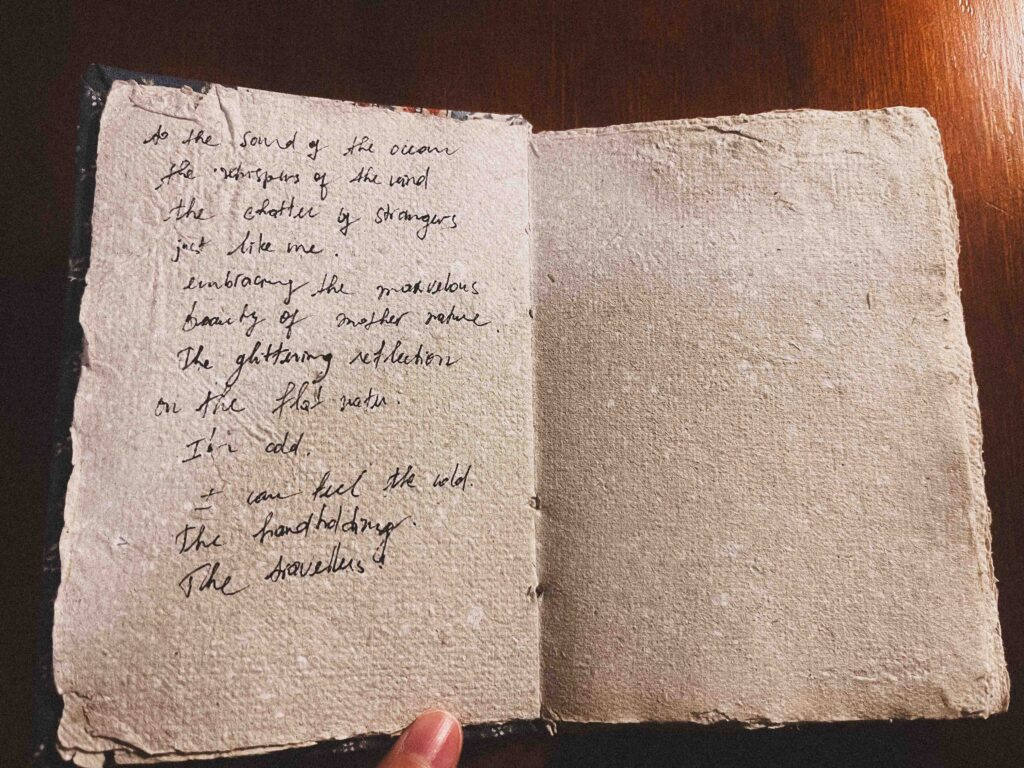 to the sound of the ocean
the whispers of the wind
the chatter of strangers
just like me.
embracing the marvelous
beauty of mother nature.
The glittering reflection
on the flat water.
I'm cold.
I can feel the cold.
The handholding.
The travellers.